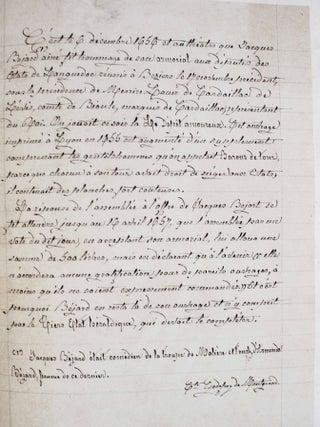 C'est le 6 décembre 1656 et authentique Jacques
Béjard aîné fit hommage de son armorial aux députés des
Etats de Languedoc réunis à Béziers le 17 novembre précédent,
sous la présidence de Messire Louis de Cardaillac de
Lévis, comte de Bioule, marquis de Cardaillac, représentant
du Roi. On jouait ce soir là le Dépit amoureux. Cet ouvrage
imprimé à Lyon en 1655 est augmenté d'un supplément
comprenant les gentilshommes qu'on appelait Barons de tour,
parceque chacun à son tour avait droit de siéger aux Etats;
il contenait des planches, fort couteuses.
La réponse de l'assemblée à l'offre de Jacques Béjart se
fit attendre jusqu'au 16 avril 1657, que l'assemblée par un
vote du dit jour, en acceptant son armorial, lui alloua une
somme de 500 livres, mais en déclarant qu'à l'avenir elle
n'accordera aucune gratification pour de pareils ouvrages, à
moins qu'ils ne soient expressément commandés. C'est
pourquoi Béjard en resta là de son ouvrage et n'y comprit
pas le Tiers Etat héraldique, qui devait le compléter.
(1) Jacques Béjard était comédien de la troupe de Molière et Armande
Béjard, femme de ce dernier.
de Montgrand